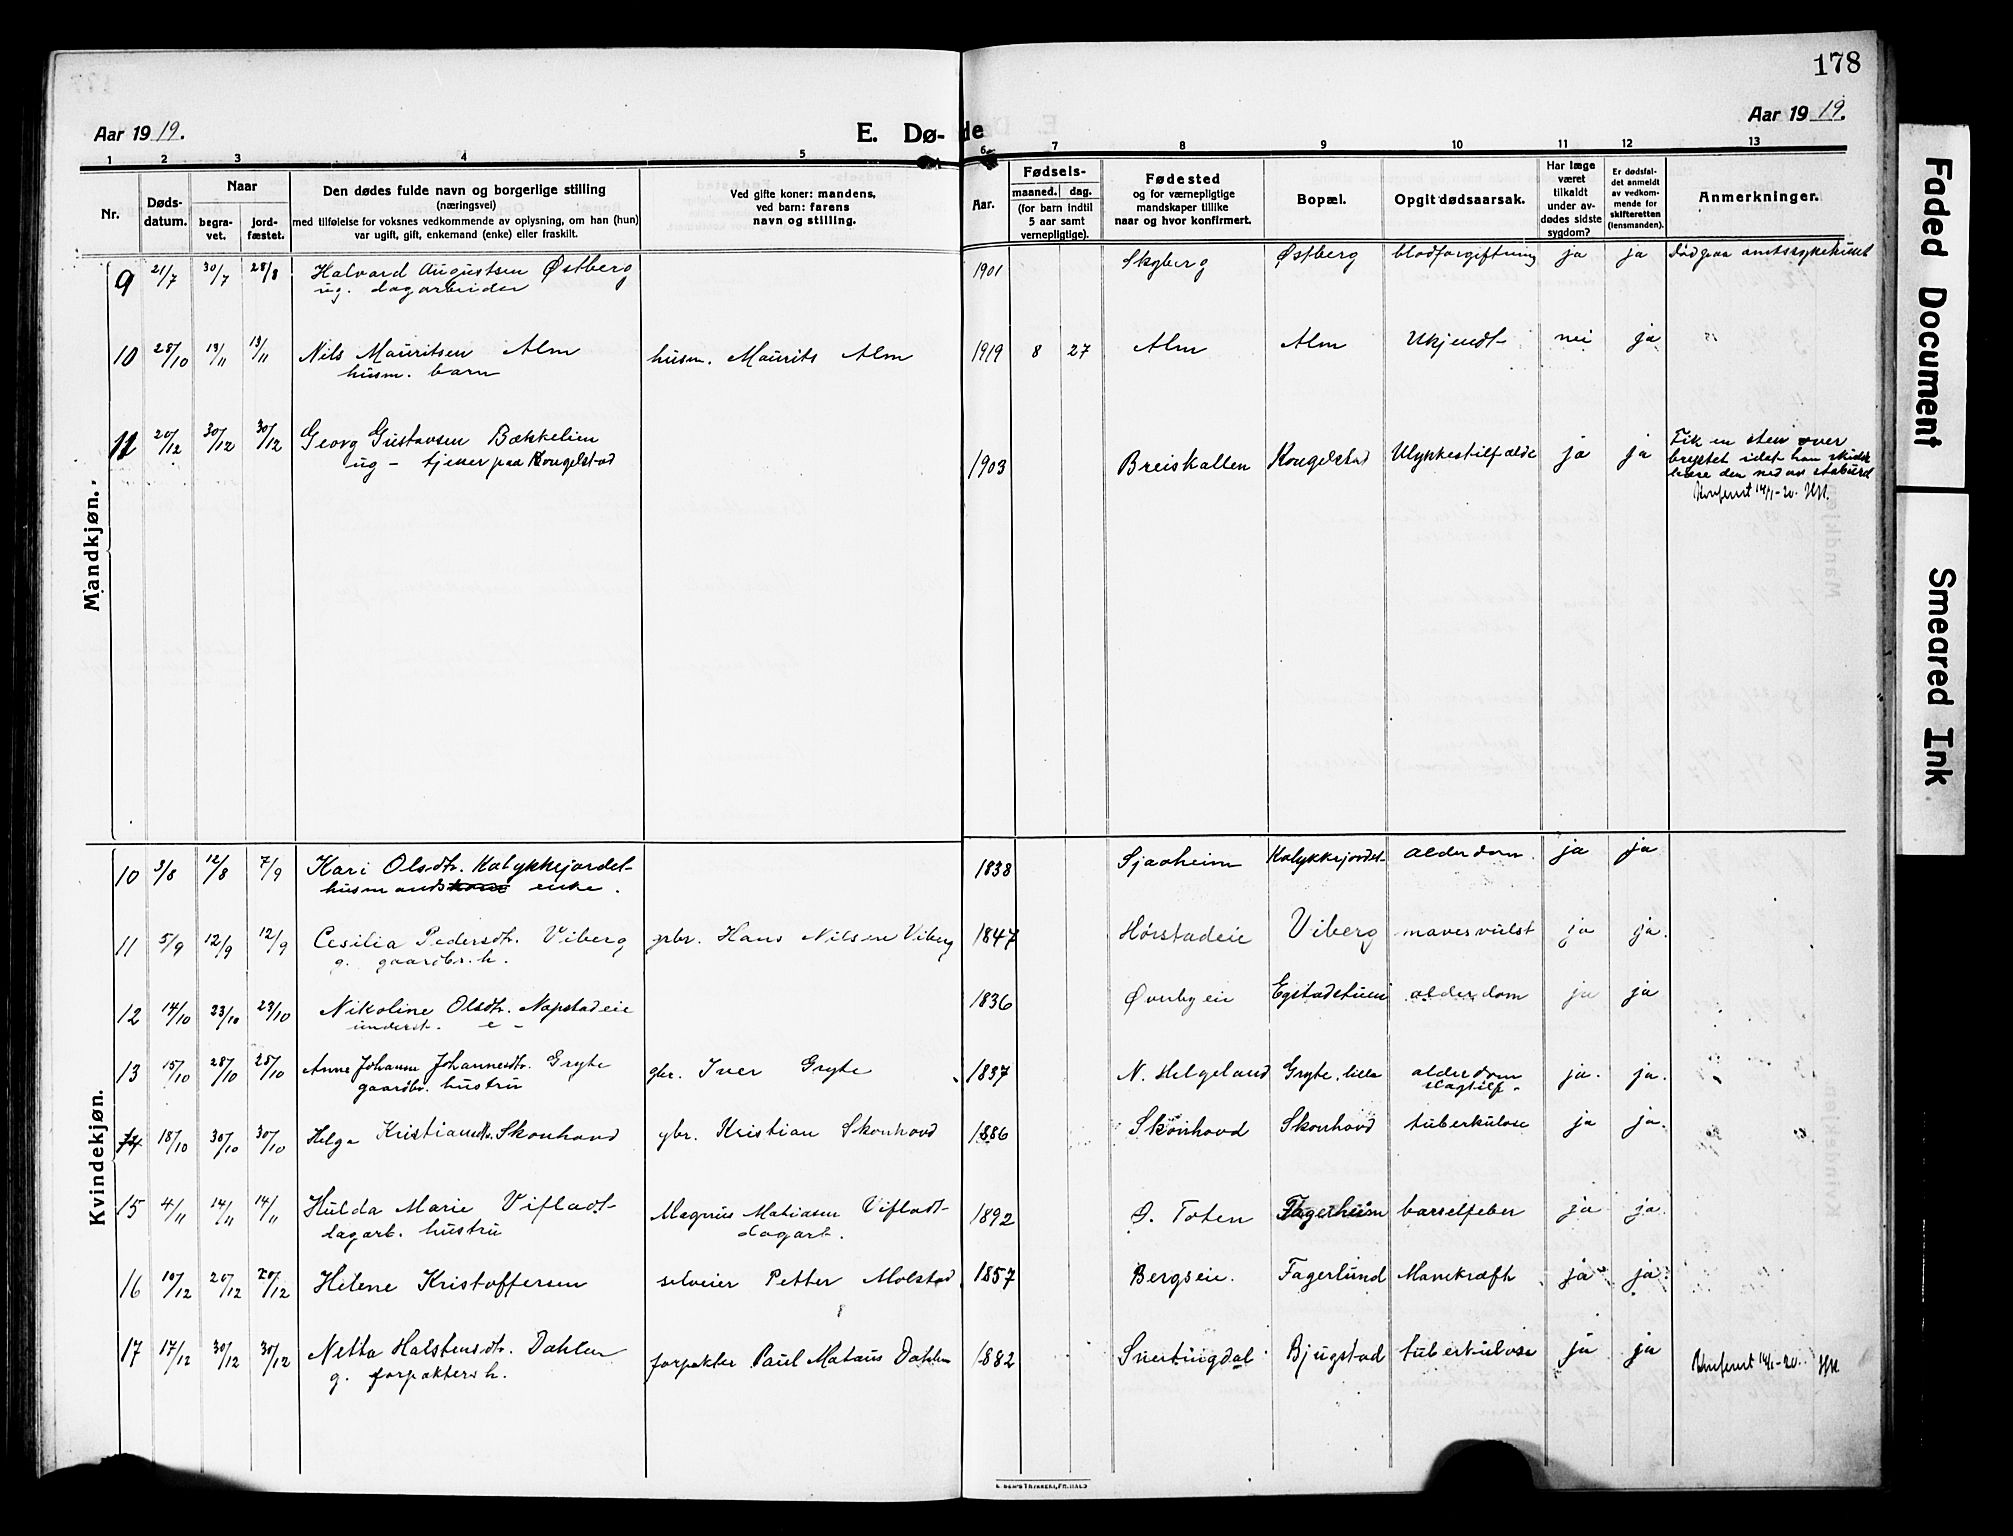 178
Aar 19 19.
E. Dø- de
Aar 19 19.
1 2 3 4 5 6 7 8 9 10 11 12 13
Nr.
Døds-
datum.
Naar
begra-
vet.
jord-
fæstet.
Den dødes fulde navn og borgerlige stilling
(næringsvei)
med tilføielse for voksnes vedkommende av oplysning, om han (hun)
var ugift, gift, enkemand (enke) eller fraskilt.
Ved gifte koner: mandens,
ved barn: farens
navn og stilling.
Aar.
Fødsels-
maaned. dag.
(for barn indtil
5 aar samt
vernepligtige).
Fødested
og for værnepligtige
mandskaper tillike
naar og hvor konfirmert.
Bopæl.
Opgit dødsaarsak.
Har læge
været
tilkaldt
under av-
dødes sidste
sygdom?
Er dødsfal-
det anmeldt
av vedkom-
mende for
skifteretten
(lensmanden).
Anmerkninger.
Mandkjøn.
9 21/7 30/7 28/8 Halvard Augustsen Østberg 1901 Skyberg Østberg blodforgiftning ja ja Død paa amtssykehuset
ug. dagarbeider
10 28/10 13/11 13/11 Nils Mauritsen Alm husm. Maurits Alm 1919 8 27 Alm Alm Ukjendt nei ja
husm. barn
11 20/12 30/12 30/12 Georg Gustavsen Bækkelien 1903 Breiskallen Kongelstad Ulykkestilfælde ja ja Fik en sten over
ug - tjener paa Kongelstad brystet idet han skulde
bære den ned av staburet
Konferert 14/1-20. HH.
Kvindekjøn.
10 3/8 12/8 7/9 Kari Olsdtr. Kalykkejordet 1838 Sjaaheim Kalykkejordet alderdom. ja ja
husmands kone enke.
11 5/9 12/9 12/9 Cesilia Pedersdtr. Viberg grbr. Hans Nilsen Viberg 1847 Hørstadeie Viberg mavesvulst ja ja.
g. gaardbr. h.
12 14/10 23/10 23/10 Nikoline Olsdtr. Napstadeie 1836 Øverbyeie Egstadstuen alderdom ja ja
underst. e -
13 15/10 28/10 28/10 Anne Johanne Johannesdtr. Gryte gbr. Iver Gryte 1837 N. Helgeland Gryte, lille alderdom ja. ja.
gaardbr. hustru slagtilf.
14 18/10 30/10 30/10 Helga Kristiansdtr. Skonhovd gbr. Kristian Skonhovd 1886 Skonhovd Skonhovd tuberkulose ja ja.
15 4/11 14/11 14/11 Hulda Marie Vifladt Magnus Matiasen Vifladt 1892 Ø. Toten Fagerheim barselfeber ja ja.
dagarb. hustru dagarb.
16 10/12 20/12 20/12 Helene Kristoffersen selveier Petter Molstad 1857 Bergseie. Fagerlund Mavekræft ja ja.
17 17/12 30/12 30/12 Netta Halstensdtr. Dahlen forpakter Paul Mataus Dahlen 1882 Snertingdal Bjugstad tuberkulose ja ja Konferert 14/1-20. HH
g. forpakters h.
Faded Document
Smeared Ink